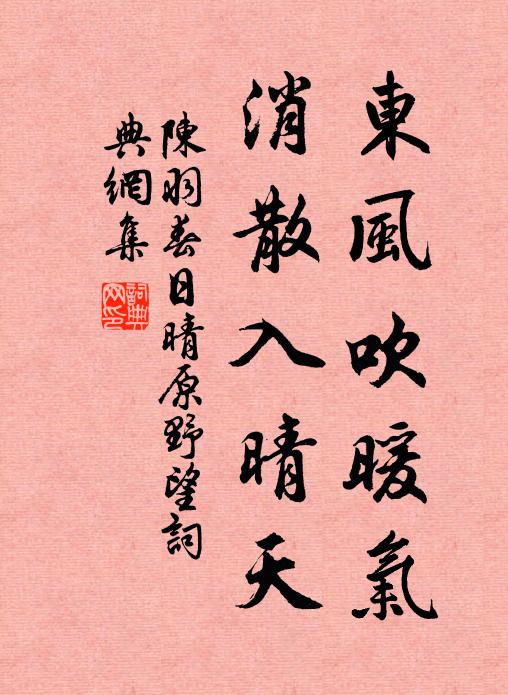 東風吹暖氣
消散入晴天
陳羽春日晴原野望詞
典網集
詞典
网印